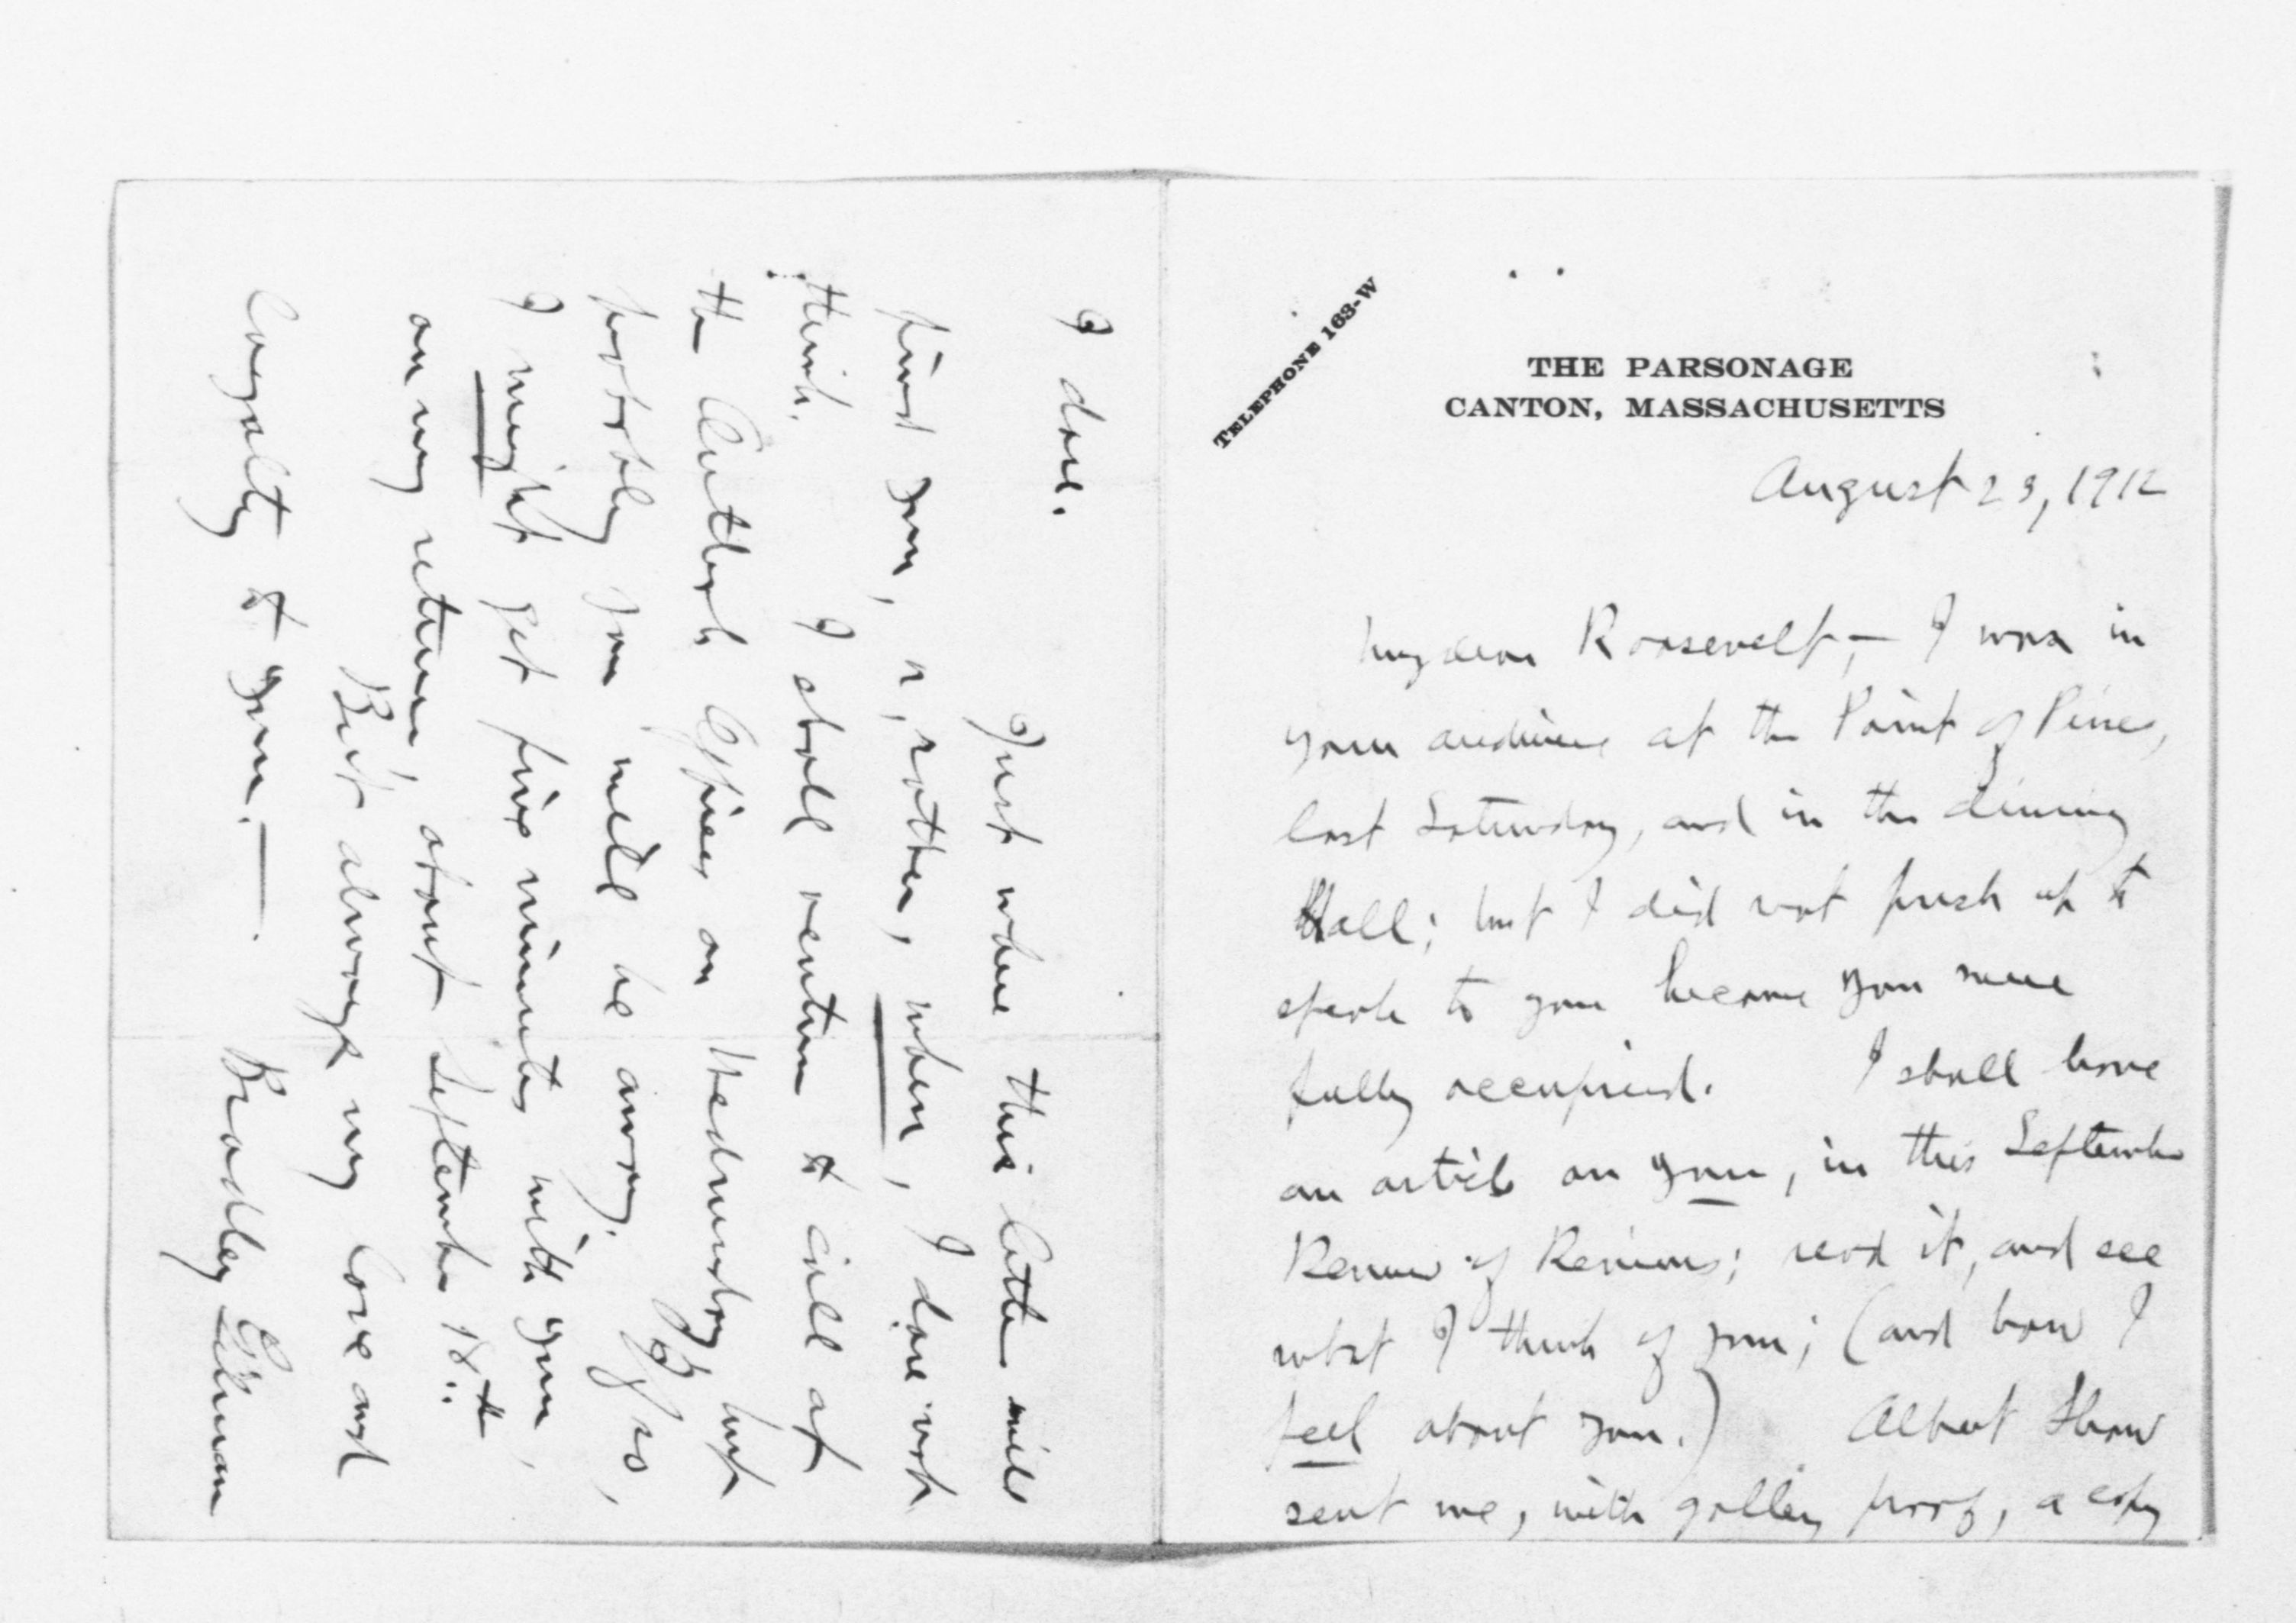 TELEPHONE 163-W
THE PARSONAGE
CANTON, MASSACHUSETTS
August 23, 1912
My dear Roosevelt,— I was in
your audience at the Point of Pines,
last Saturday, and in the dining
Hall; but I did not push up to
speak to you because you were
fully occupied. I shall have
an article on you, in this September
Review of Reviews; read it, and see
what I think of you; (and how I
feel about you.) Albert Shaw
sent me, with galley proof, a copy
I dare.
Just where this letter will
find you, or, rather, when, I dare not
think. I shall venture to call at
the Outlook Offices on Wednesday but
probably you will be away. If so,
I might get five minutes with you,
on my return, about September 18th.
But always my love and
loyalty to you.— Bradley Gilman